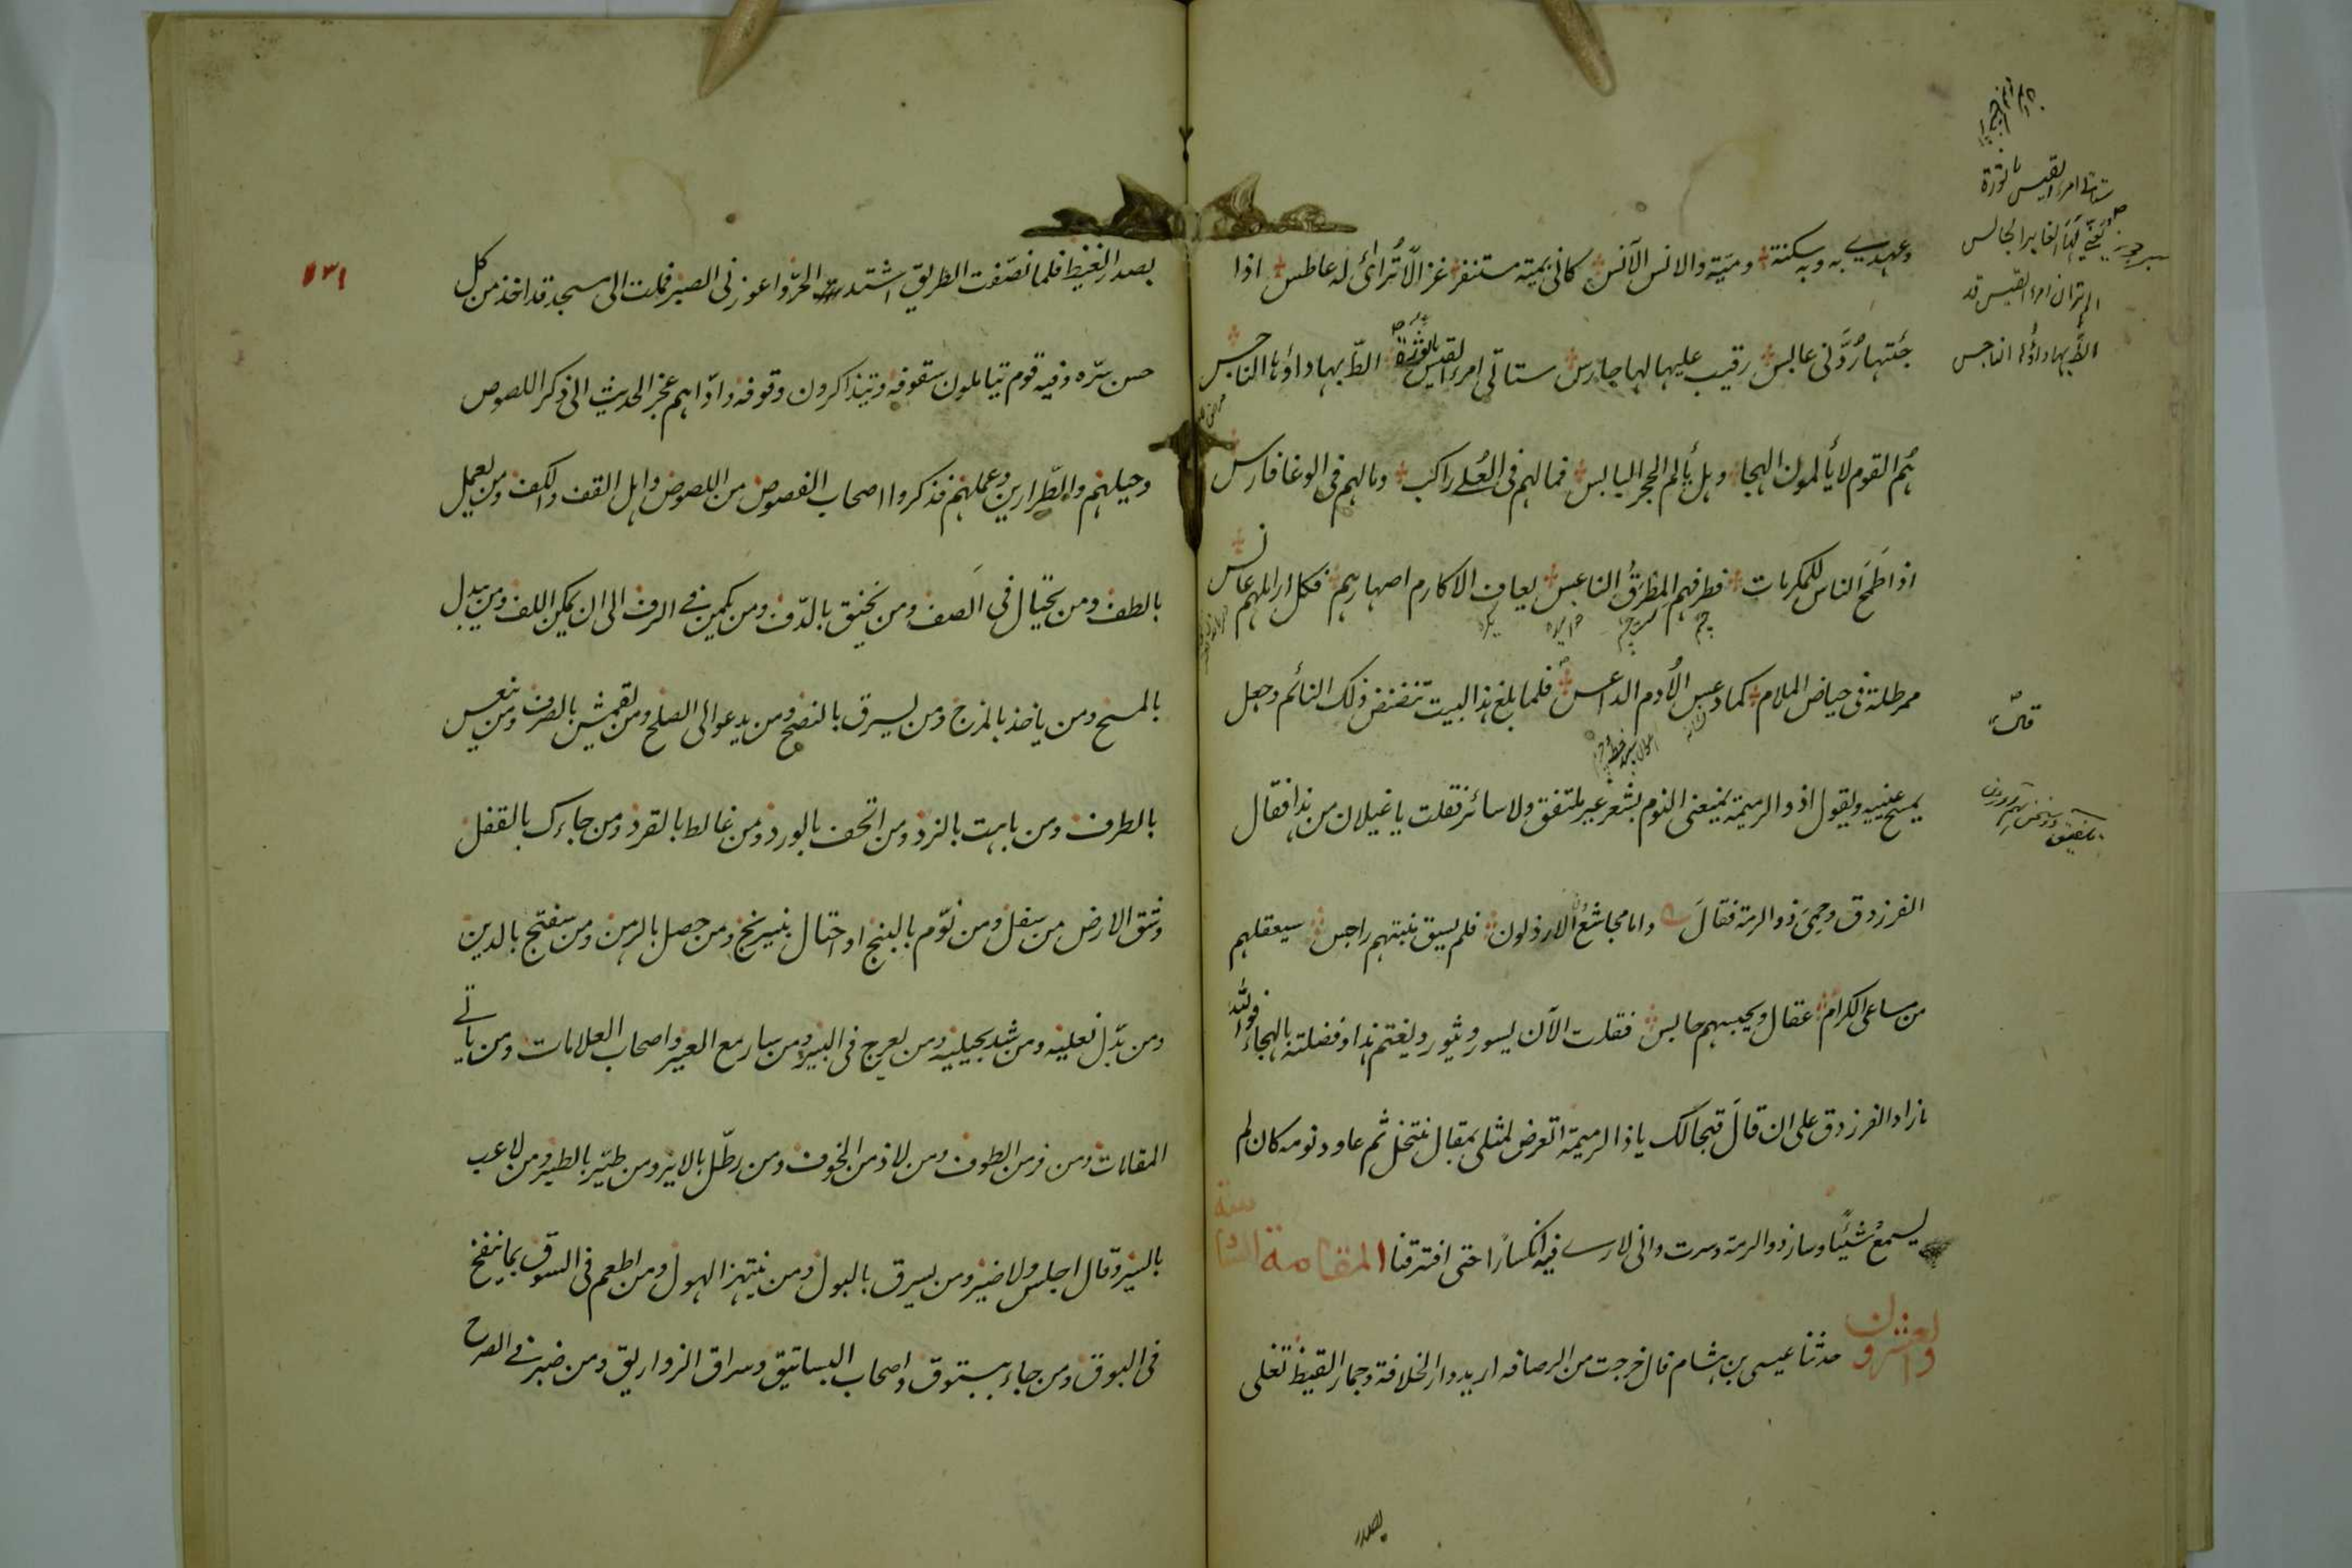 وعهدي به وبه سكنة ومية والانس الآنس كاني بمية مستنفر غزالا ترائى له عاطس اذا
جئتها ردّني عابس رقيب عليها لها حارس ستأتي امرء القيس بالقورة الظ بها داؤها الناجس
هُم القوم لا يألمون الهجا وهل يألم الحجر اليابس فما لهم في العُلى راكب وما لهم في الوغا فارس
اذا طَمح الناس للمكرمات فطرفهم المطرق الناعس يعاف الاكارم اصهارهم فكل اراملهم عانس
ممرطلة في حياض الملام كما دعس الأدم الداعس فلما بلغ هذا البيت تنفض ذلك النائم وجعل
يمسح عينيه ويقول اذو الرميمة يمنعني النوم بشعر غير ملتفق ولا سائر فقلت يا غيلان من هذا فقال
الفرزدق وحمِيَ ذو الرمة فقالَ واما مجاشعُ الارذلون فلم يسق نبتهم راجس سيعقلهم
من مساعي الكرام عقال ويحبسهم حابس فقلت الآن يسور ويثور ويغتم هذا وفضلته بالهجاء فوالله
ما زاد الفرزدق على ان قالَ قبحا لك يا ذا الرميمة اتعرض لمثلي بمقال منتحل ثم عاود نومه كان لم
يسمعُ شيئًا وسار ذو الرمة وسرت واني لارى فيه انكسارًا حتى افترقنا المقامة الثامنة
والعشرون حدثنا عيسى بن هشام قال خرجت من الرصافه اريد دار الخلافة وحمار القيظ تغلى
بصدر
ستأتي امرء القيس بالقورة
يغني بها العابر الجالس
الم تر ان امرء القيس قد
الظّ بها داؤها الناجس
١٣١
بصدر الغيظ فلما نصّفت الطريق اشتد الحرّ واعوزني الصبر فملت الى مسجد قد اخذ من كل
حسن سرّه وفيه قوم يتاملون سقوفه ويتذاكرون وقوفه واداهم عجز الحديث الى ذكر اللصوص
وحيلهم والطّرارين وعملهم فذكروا اصحاب الفصوص من اللصوص واهل القف والكف ومن يعمل
بالطف ومن يحتال في الصف ومن يخنق بالدّف ومن يكمن في الرف الى ان يمكن اللف ومن يبدل
بالمسح ومن ياخذ بالمزح ومن يسرق بالنصح ومن يدعو الى الصلح ومن يقمش بالصرف ومن ينعس
بالطرف ومن باهت بالنرد ومن اتحف بالورد ومن غالط بالقرد ومن جاءك بالقفل
وشق الارض من سفل ومن نوّم بالبنج او احتال بنيرنج ومن حصل بالرهن ومن سفتج بالدين
ومن بدّل نعليه ومن شد بحبليه ومن يعرج في البير ومن سار مع العير واصحاب العلامات ومن ياتي
المقامات ومن فر من الطوف ومن لاذ من الخوف ومن رطّل بالاير ومن طيّر بالطير ومن لاعب
بالسير وقال اجلس ولا ضير ومن يسرق بالبول ومن ينتهز الهول ومن اطعم في السوق بما ينفخ
في البوق ومن جاء ببستوق واصحاب البساتيق وسراق الزواريق ومن ضبر في الصرح